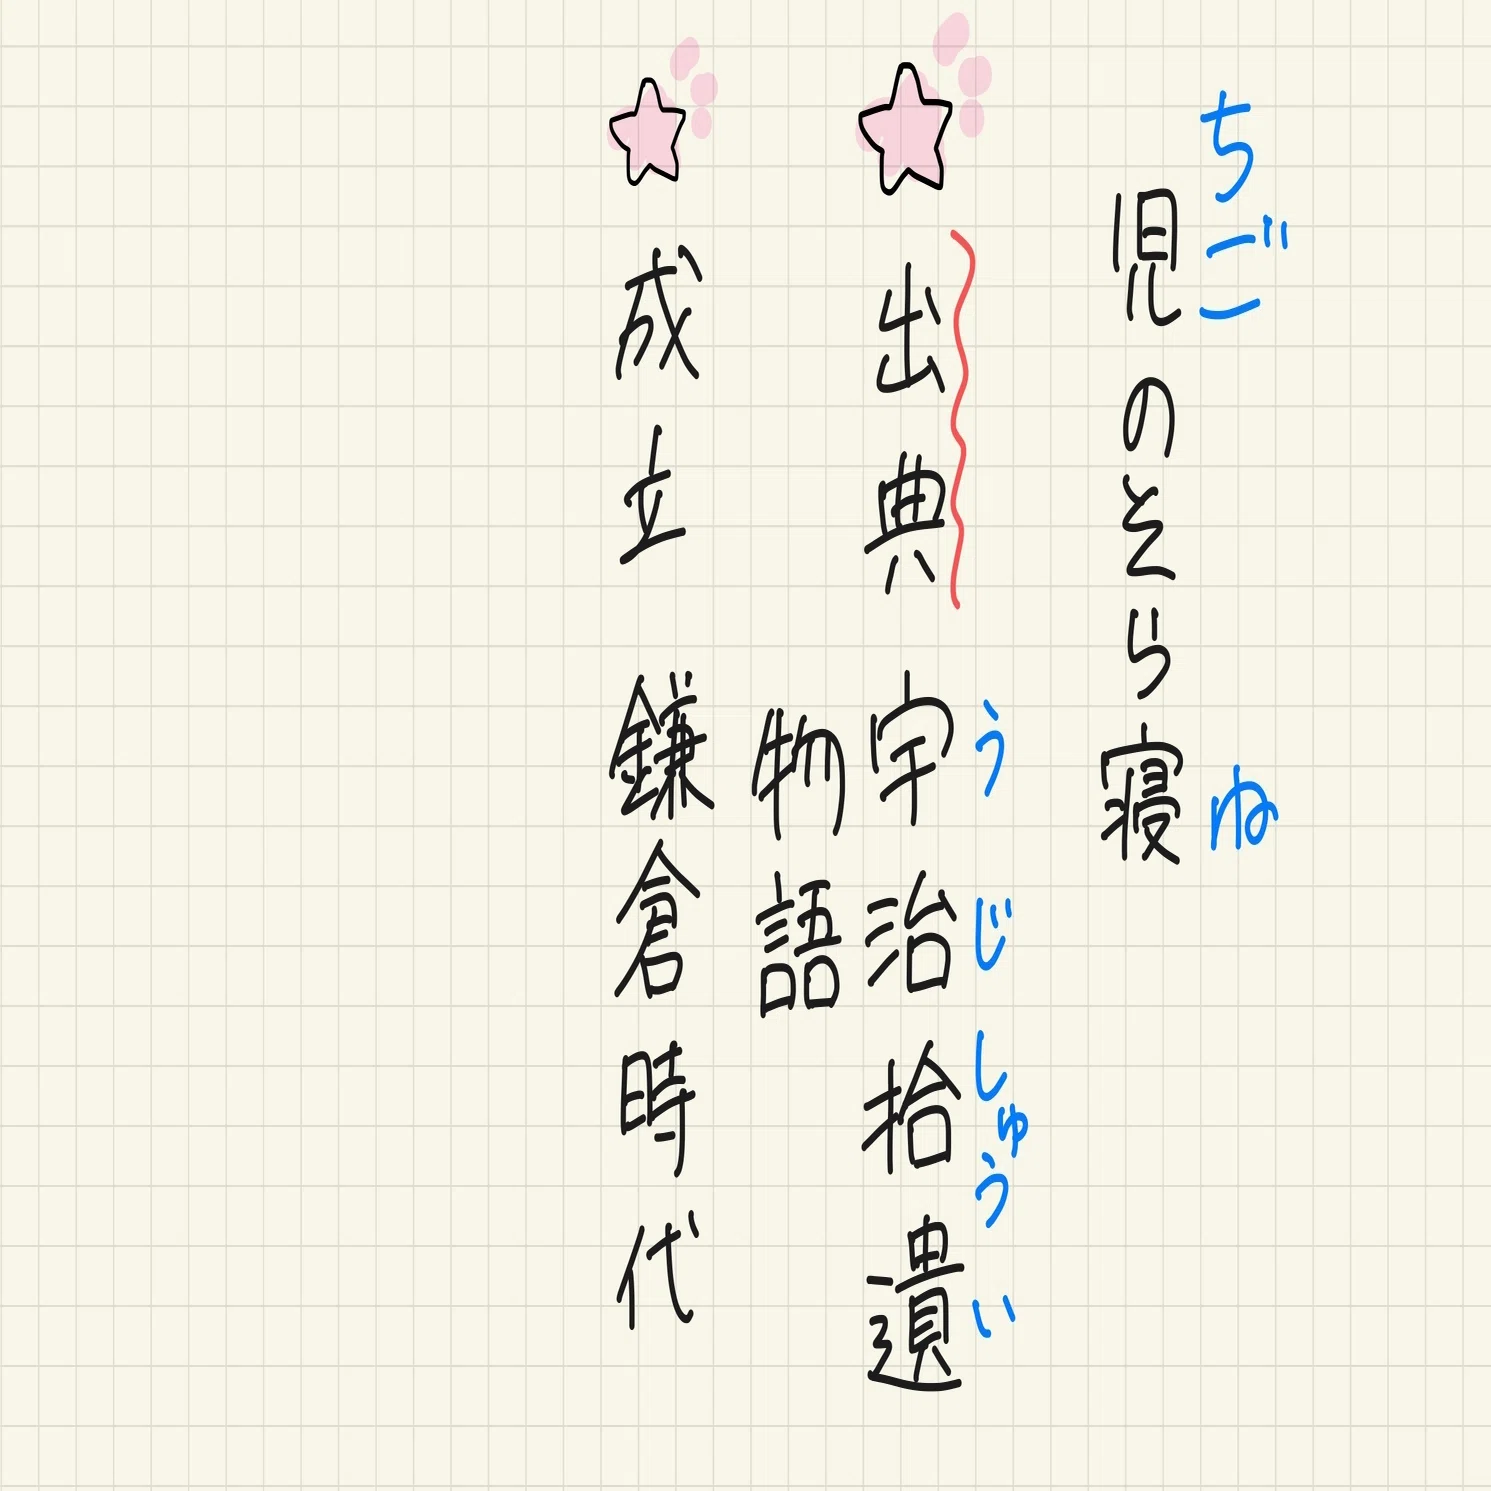 児のそら寝
ちご
ね
出典 宇治拾遺
うじしゅうい
物語
成立 鎌倉時代